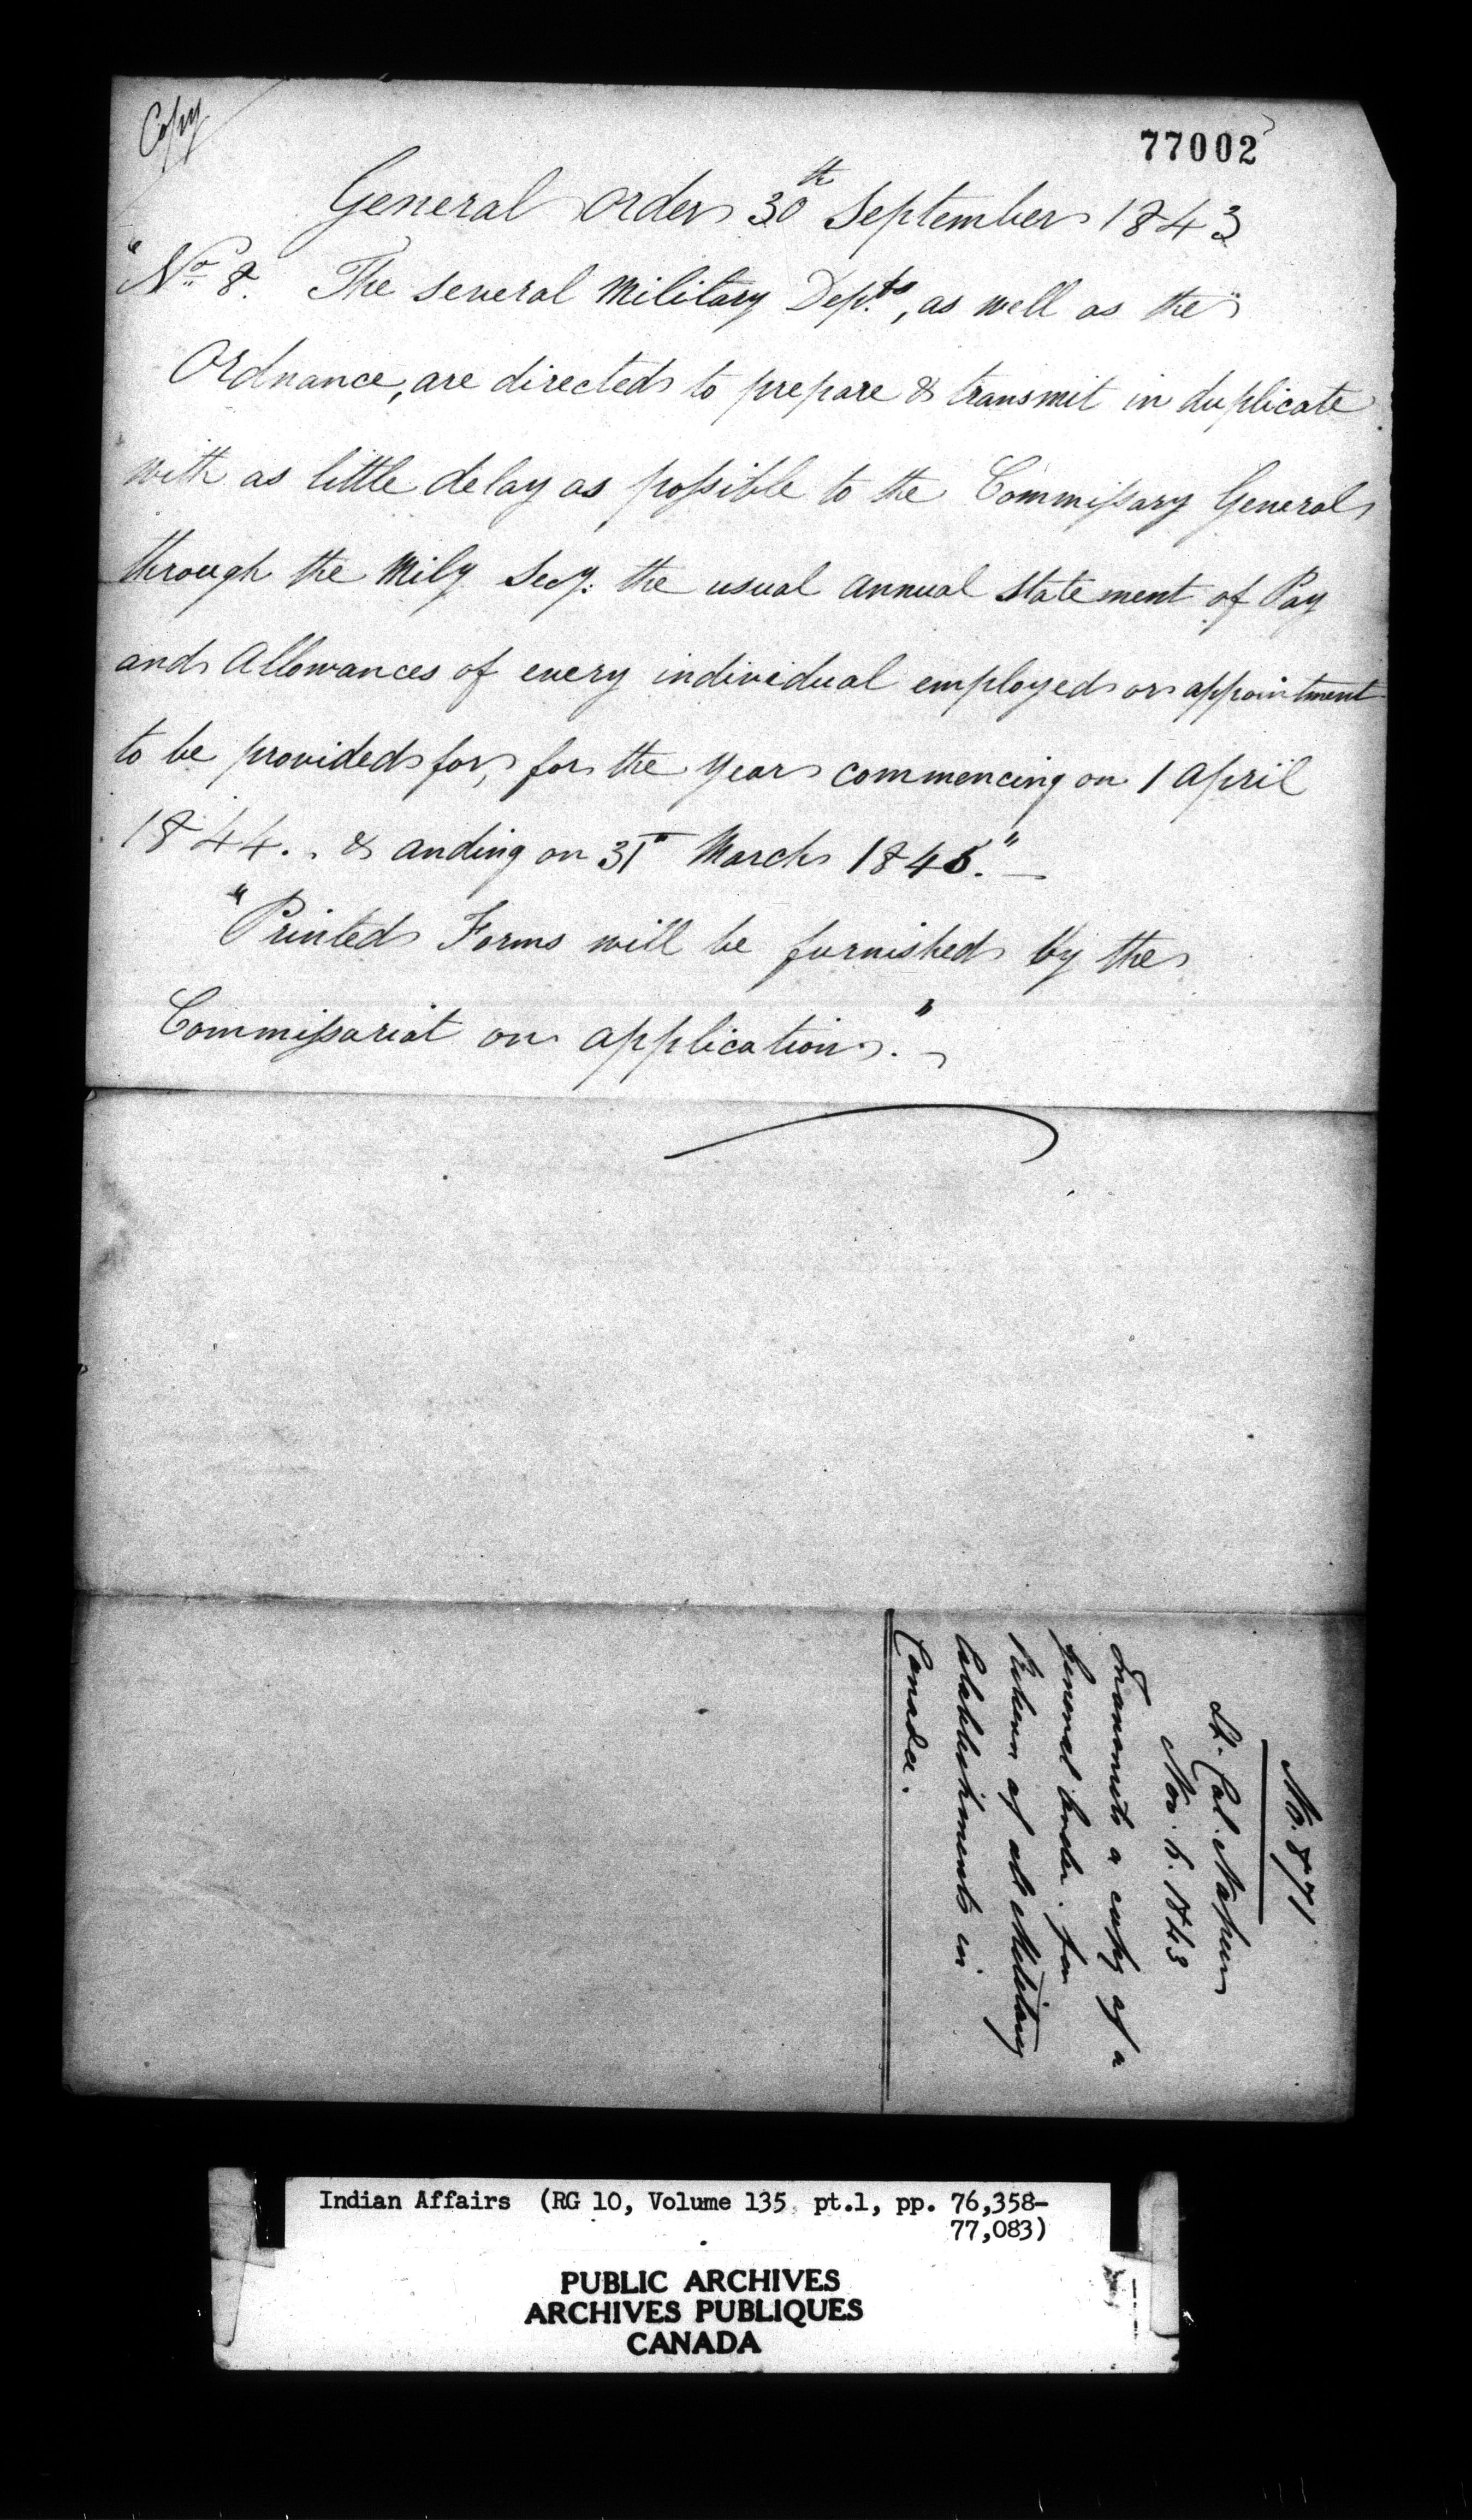 Copy
77002
General Order 30th September 1843
"No. 8. The several Military Depts., as well as the
Ordnance, are directed to prepare & transmit in duplicate
with as little delay as possible to the Commissary General
through the Mily Secy: the usual Annual Statement of Pay
and Allowances of every individual employed or appointment
to be provided for, for the Year commencing on 1 April
1844.. & anding on 31st March 1845."
"Printed Forms will be furnished by the
Commissariat on application."
No. 871
Lt. Col. Napier
Nov. 6. 1843
Transmits a copy of a
General Order. for
Return of all Military
Establishments in
Canada.
Indian Affairs (RG 10, Volume 135, pt.1, pp. 76,358-
77,083)
PUBLIC ARCHIVES
ARCHIVES PUBLIQUES
CANADA